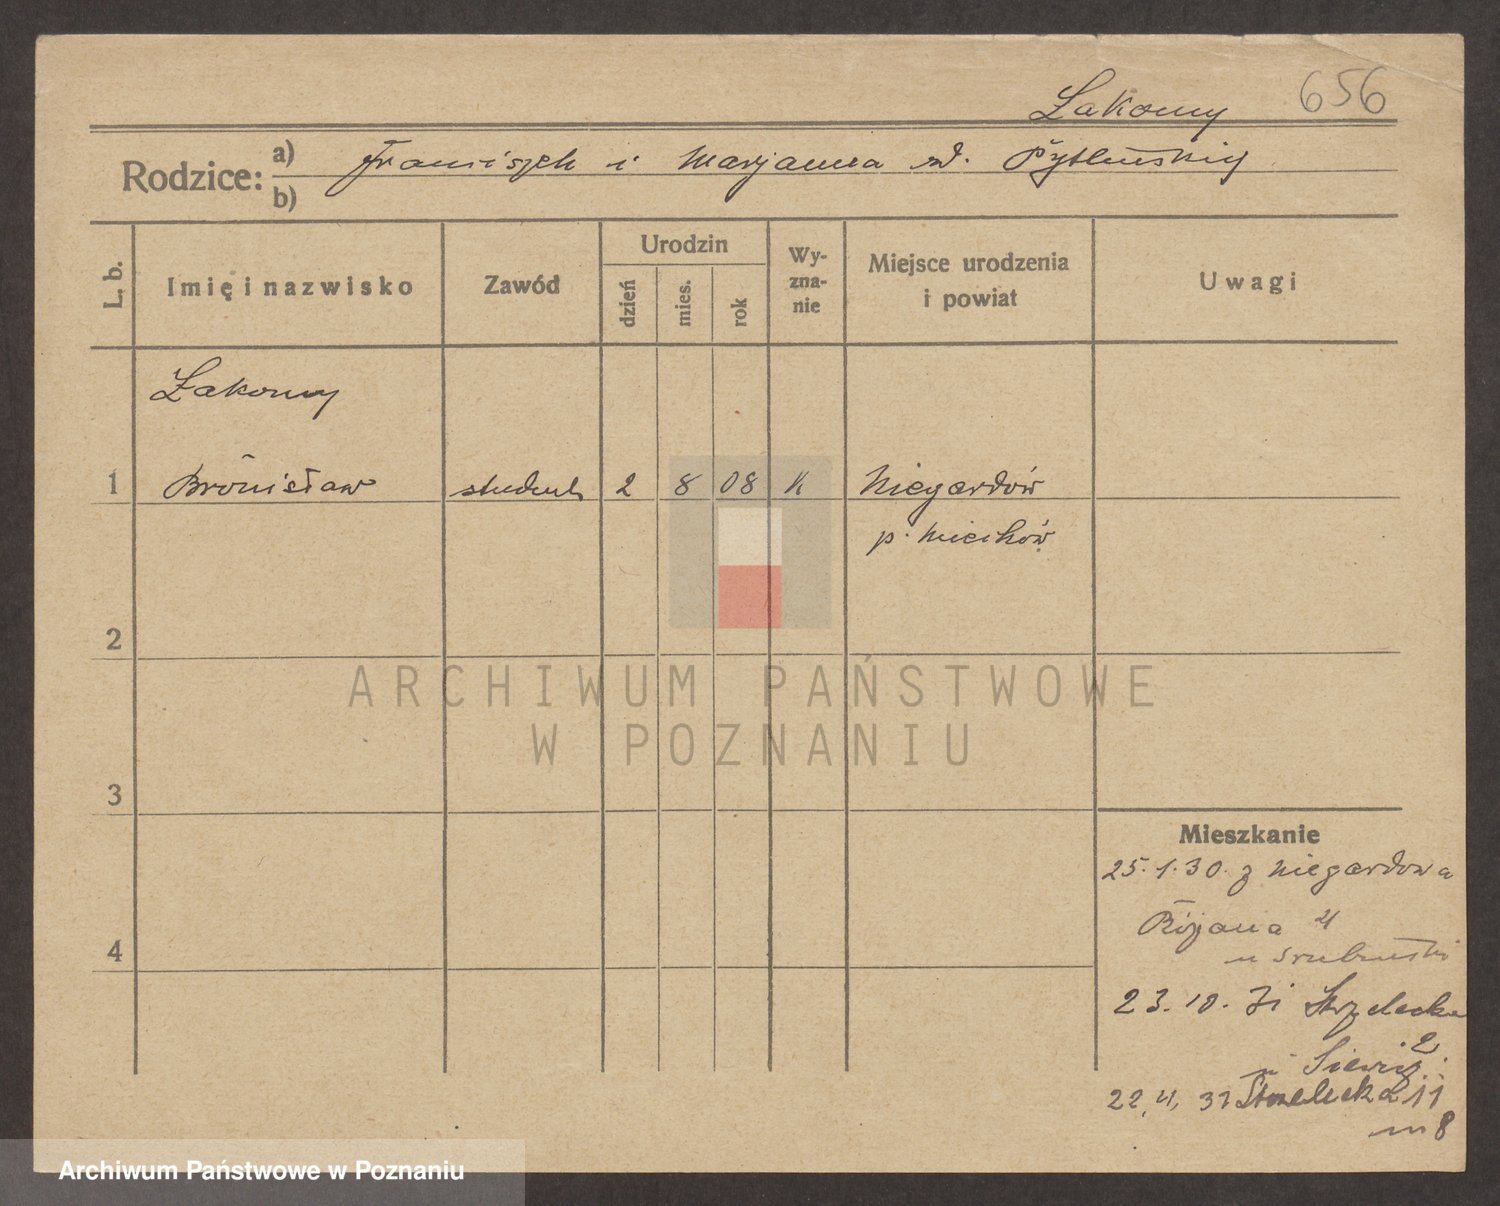 Łakomy 656
Rodzice: a) Franciszek i Marjanna zd.
b)
L. b. Imię i nazwisko Zawód Urodzin dzień mies. rok Wy-zna-nie Miejsce urodzenia i powiat Uwagi
Łakomy
1 Bronisław student 2 8 08 k Niegardów
p. Miechów
2
ARCHIWUM PAŃSTWOWE
W POZNANIU
3
Mieszkanie
25.1.30. z Niegardowa
Różana 4
4
23.10. Strzelecka
2
22,4, 31 Strzelecka 11
m 8
Archiwum Państwowe w Poznaniu